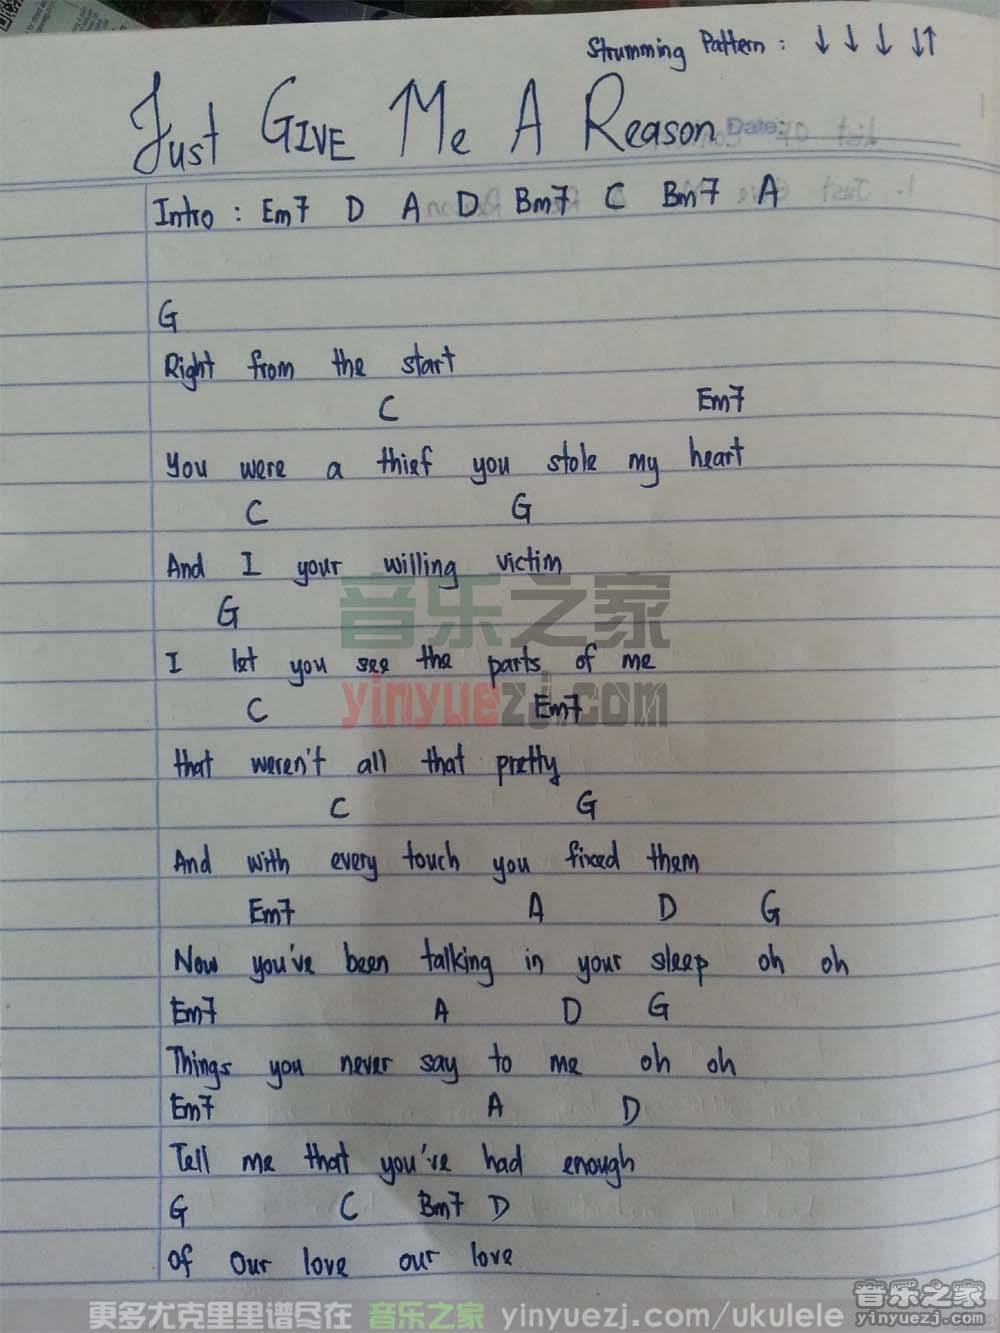 Strumming Pattern : ↓ ↓ ↓ ↓↑
Just GIVE Me A Reason
Date:
Intro : Em7 D A D Bm7 C Bm7 A
G
Right from the start
C Em7
You were a thief you stole my heart
C G
And I your willing victim
G
I let you see the parts of me
C Em7
that weren't all that pretty
C G
And with every touch you fixed them
Em7 A D G
Now you've been talking in your sleep oh oh
Em7 A D G
Things you never say to me oh oh
Em7 A D
Tell me that you've had enough
G C Bm7 D
Of Our love our love
音乐之家
yinyuezj.com
更多尤克里里谱尽在 音乐之家 yinyuezj.com/ukulele
音乐之家
yinyuezj.com